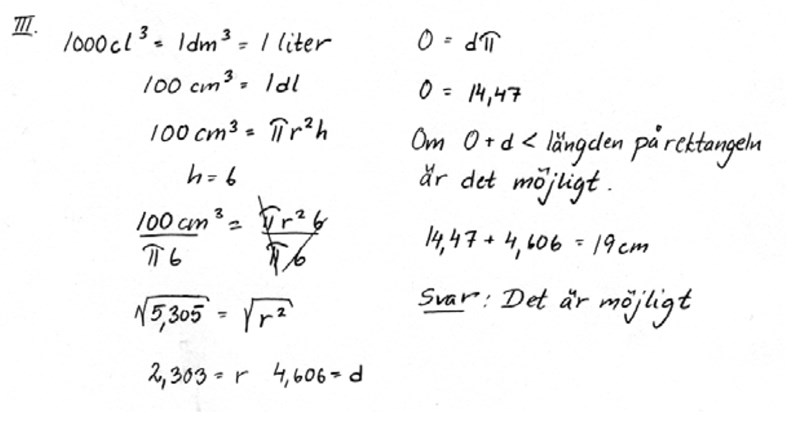 III.
1000cl³ = 1dm³ = 1 liter
100 cm³ = 1dl
100 cm³ = πr²h
h = 6
100 cm³ = πr² 6
π6 π6
√5,305 = √r²
2,303 = r 4,606 = d
O = dπ
O = 14,47
Om O + d < längden på rektangeln
är det möjligt.
14,47 + 4,606 = 19 cm
Svar: Det är möjligt